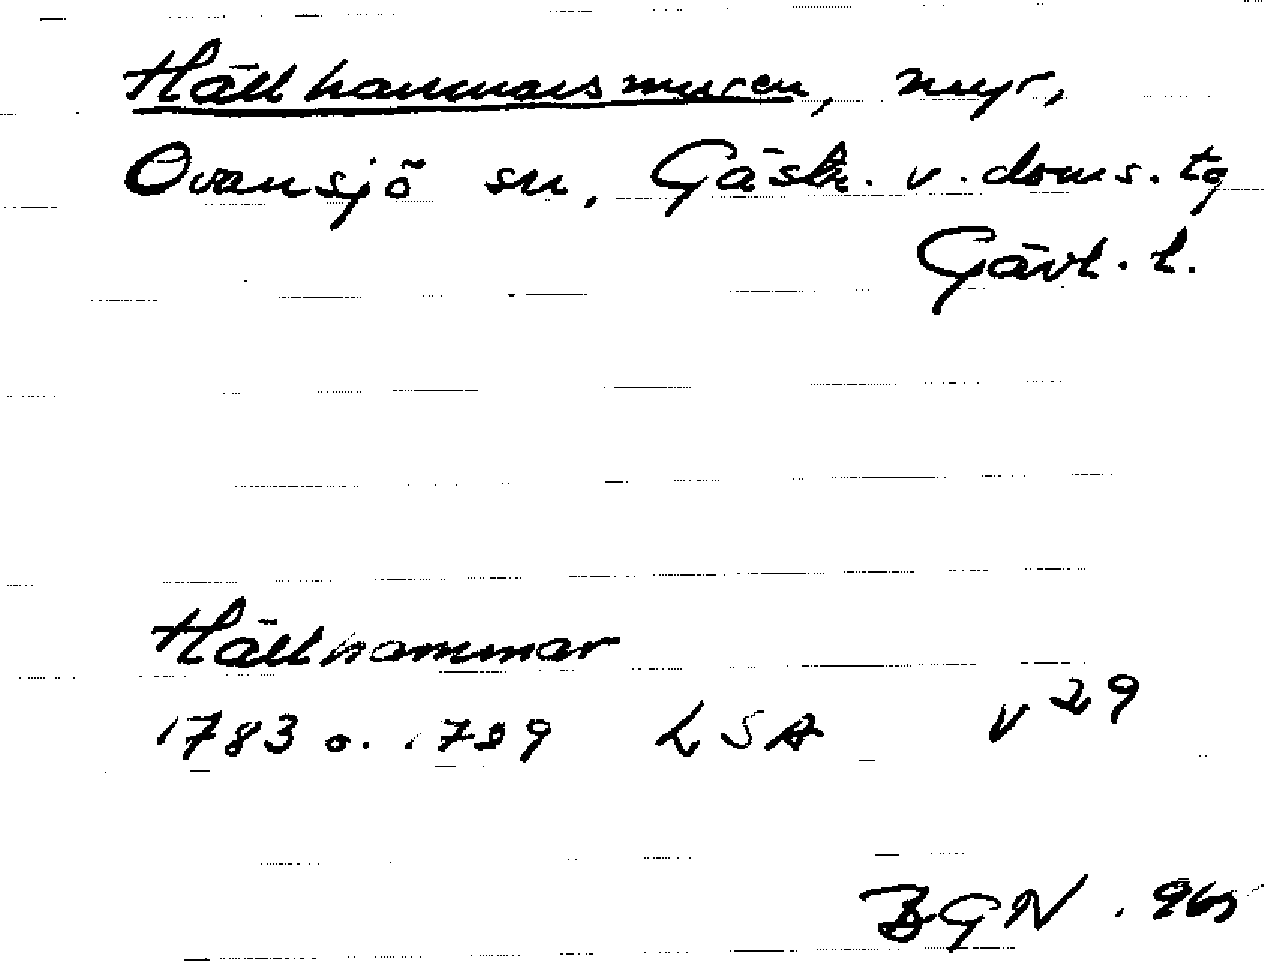 Hällhammarsmuren, myr,
Ovansjö sn, Gästr. v. doms. tg
Gävl. l.
Hällhammar
1783 o. 1789 LSA V 29
BGN. 965